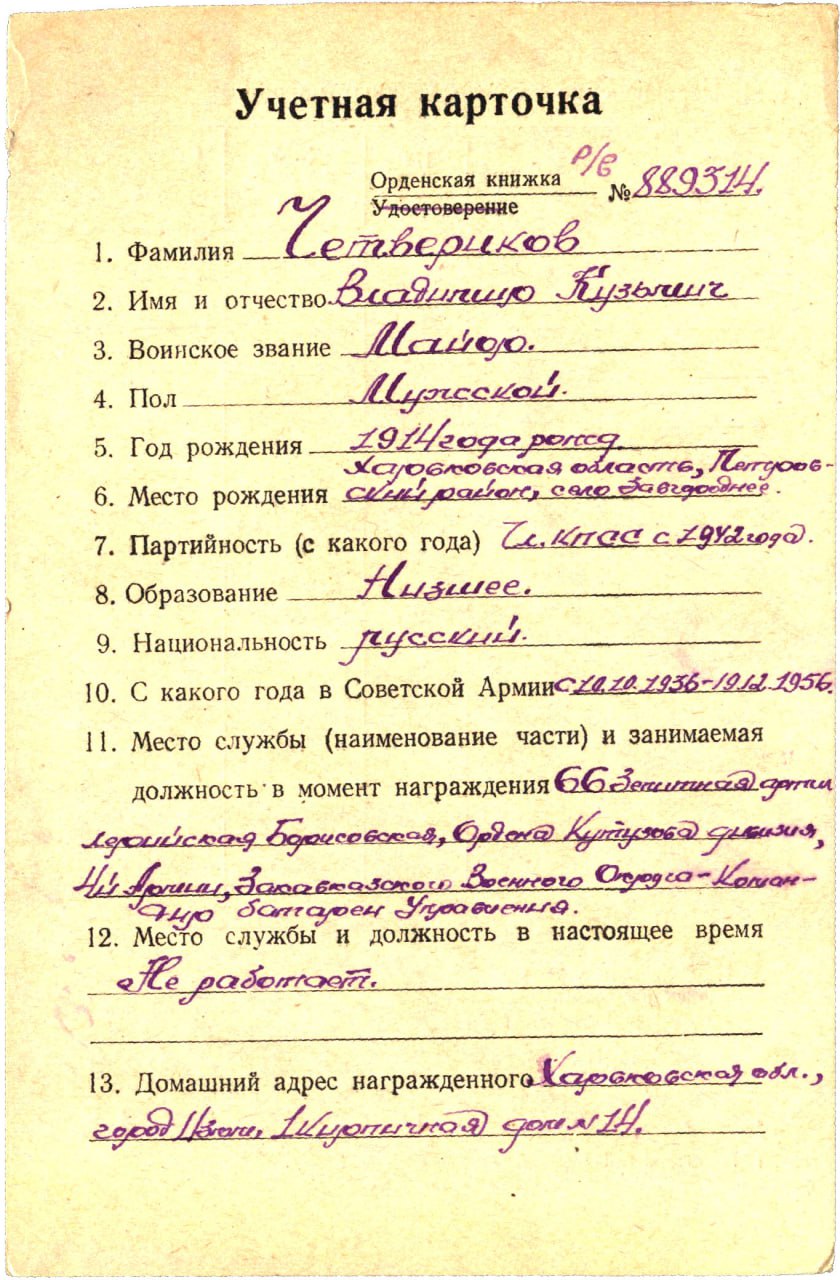 Учетная карточка
р/в
Орденская книжка № 889314.
Удостоверение
1. Фамилия Четвериков
2. Имя и отчество Владимир Кузьмич
3. Воинское звание Майор.
4. Пол Мужской.
5. Год рождения 1914 года рожд.
Харьковская область, Петров-
6. Место рождения ский район, село Завгороднее.
7. Партийность (с какого года) Чл. КПСС с 1942 года.
8. Образование Низшее.
9. Национальность русский.
10. С какого года в Советской Армии с 10.10.1936-19.12.1956.
11. Место службы (наименование части) и занимаемая
должность в момент награждения 66 Зенитная артил
лерийская Борисовская, Ордена Кутузова дивизия,
4й Армии, Закавказского Военного Округа-Коман-
дир батареи Управления.
12. Место службы и должность в настоящее время
Не работает.
13. Домашний адрес награжденного Харьковская обл.,
город Изюм, 1 Кирпичная дом № 14.